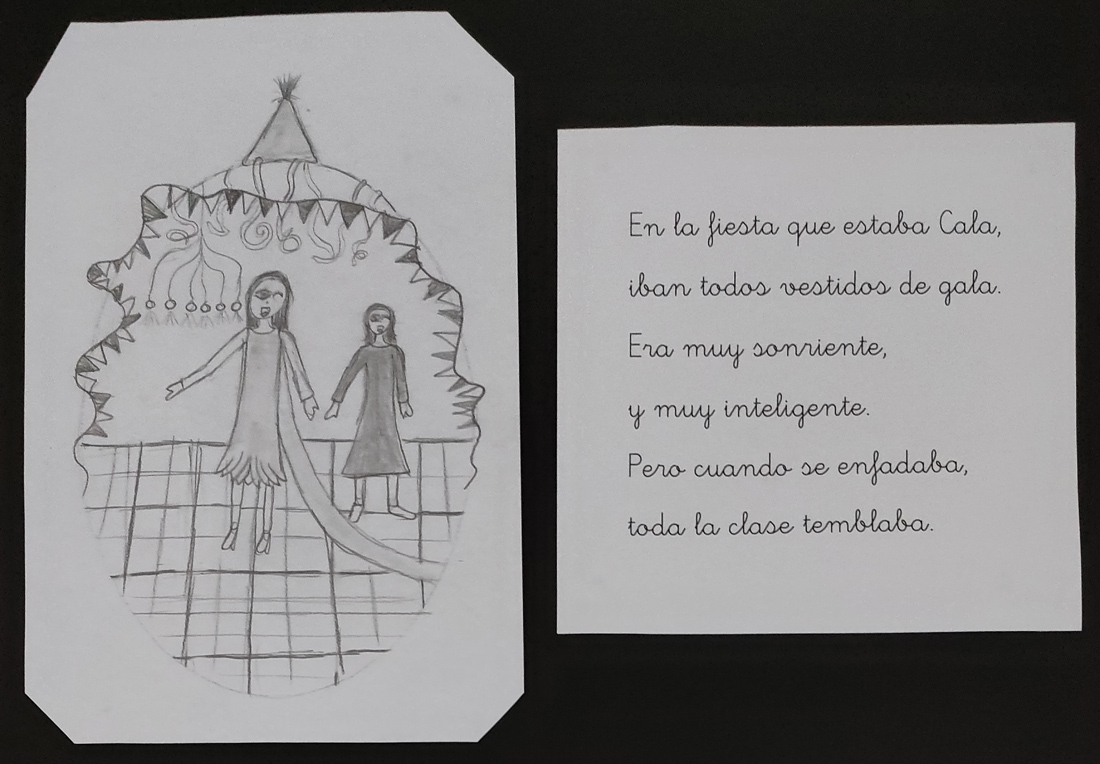 En la fiesta que estaba Cala,
iban todos vestidos de gala.
Era muy sonriente,
y muy inteligente.
Pero cuando se enfadaba,
toda la clase temblaba.